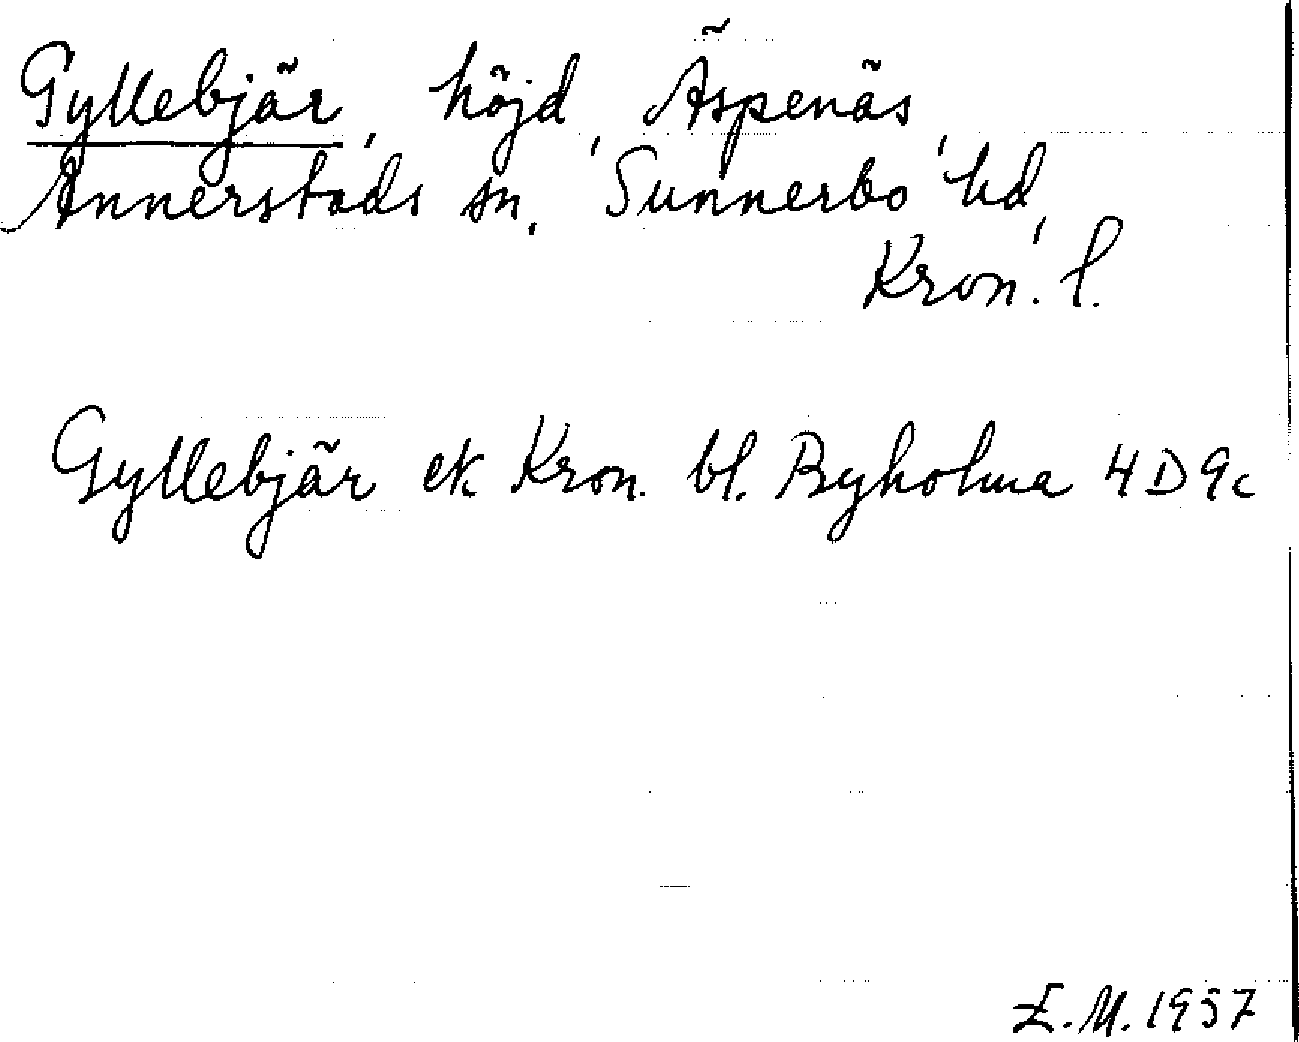 Gyllebjär, höjd, Äspenäs,
Annerstads sn, Sunnerbo hd,
Kron. l.
Gyllebjär ek. Kron. bl. Byholma 4D9c
E.M. 1957